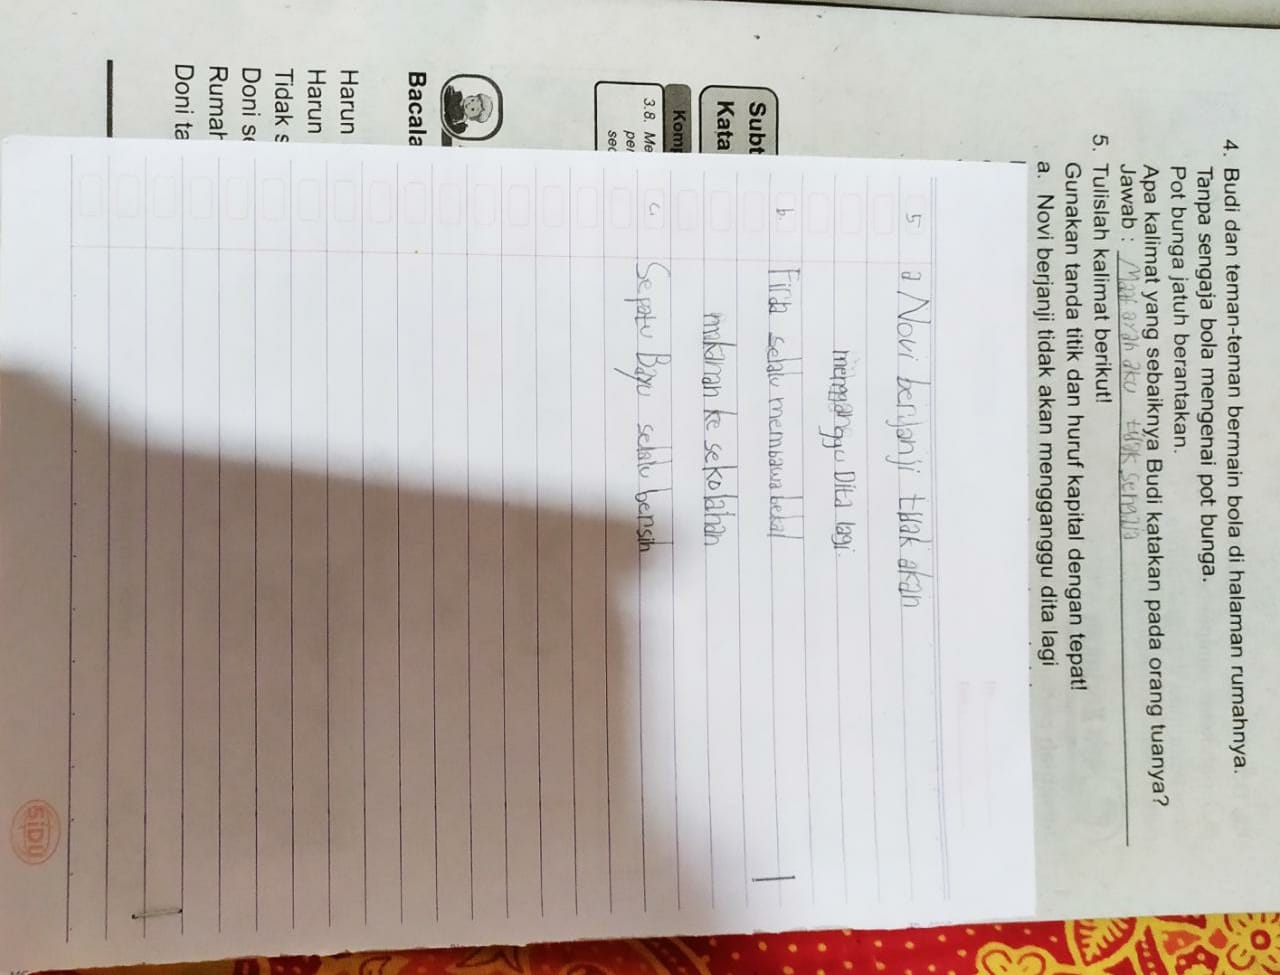 4. Budi dan teman-teman bermain bola di halaman rumahnya.
Tanpa sengaja bola mengenai pot bunga.
Pot bunga jatuh berantakan.
Apa kalimat yang sebaiknya Budi katakan pada orang tuanya?
Jawab : Maaf ayah aku tidak sengaja
5. Tulislah kalimat berikut!
Gunakan tanda titik dan huruf kapital dengan tepat!
a. Novi berjanji tidak akan mengganggu dita lagi
5 a Novi berjanji tidak akan
menggangu Dita lagi.
b. Firda selalu membawa bekal
makanan ke sekolahan
c. Sepatu Bayu selalu bersih
Subt
Kata
Komp
3.8. Me
per
sec
Bacala
Harun
Harun
Tidak s
Doni se
Rumah
Doni ta
SIDU